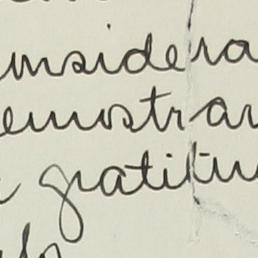 onsidera
emostrar
gratitu